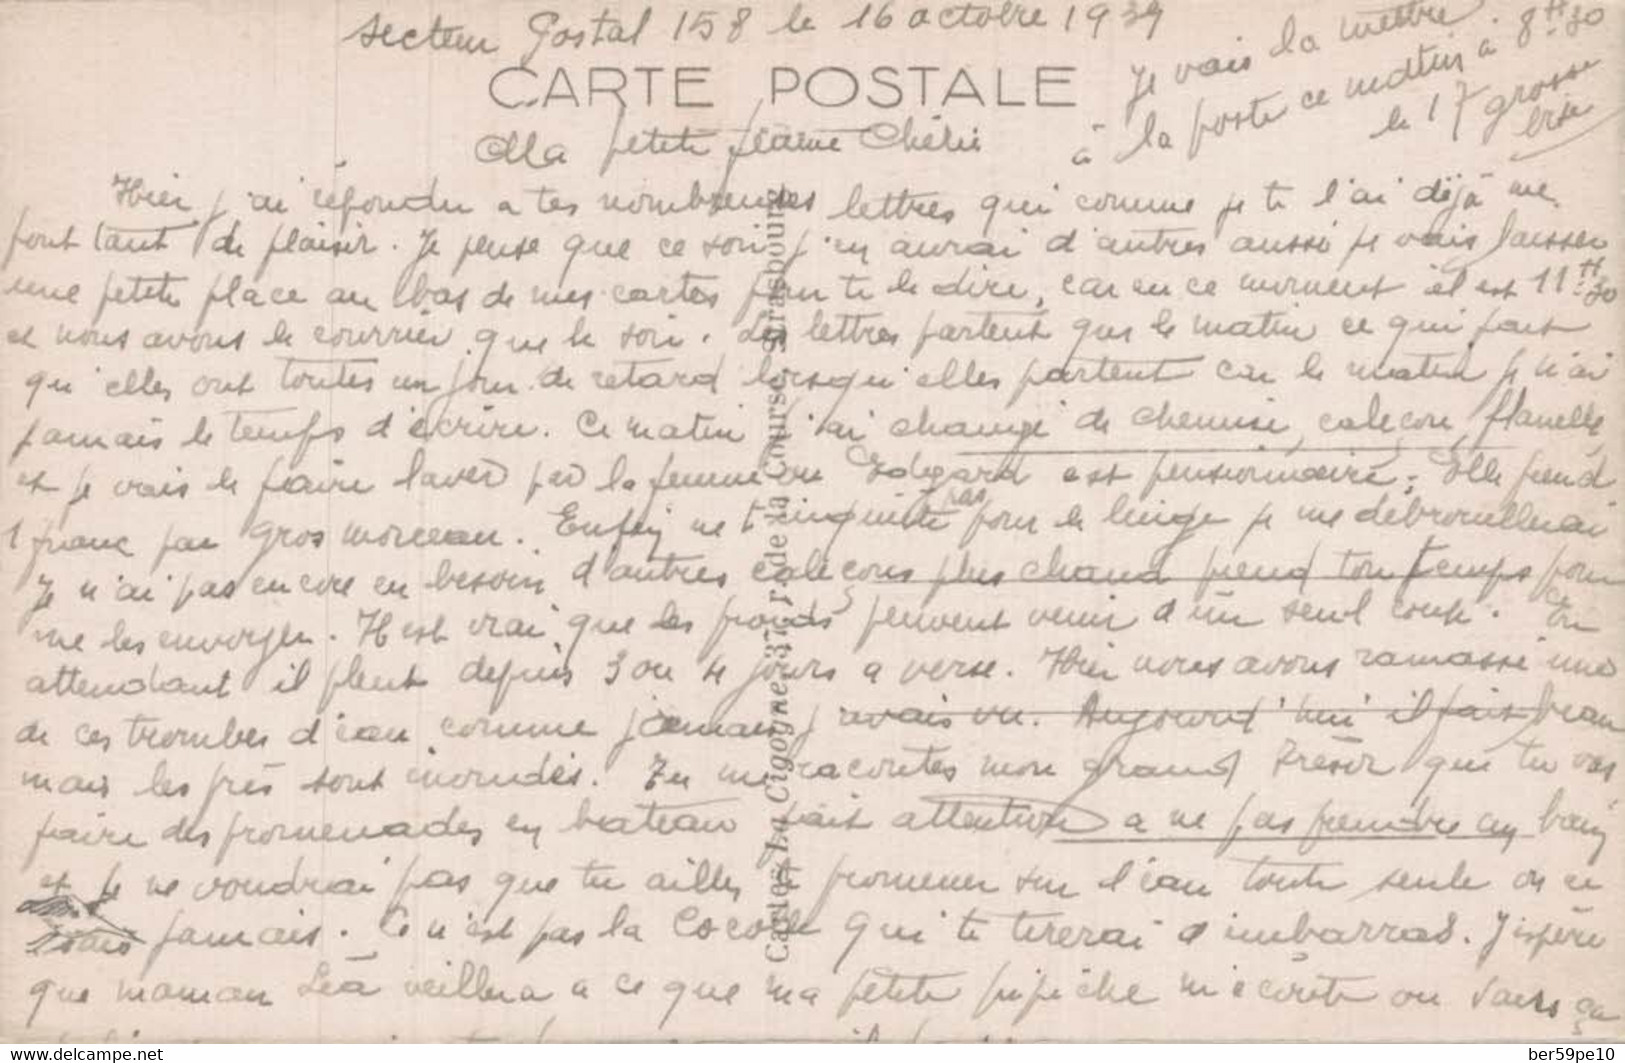 Secteur Postal 158 le 16 octobre 1939
Je vais la mettre
à la poste ce matin à 8H30
le 17 grosse
bise
CARTE POSTALE
Ma petite femme Chérie
Hier j'ai répondu a tes nombreuses lettres qui comme je te l'ai déjà me
font tant de plaisir. Je pense que ce soir j'en aurai d'autres aussi je vais laisser
une petite place au bas de mes cartes pour te le dire, car en ce moment il est 11H30
et nous avons le courrier que le soir. Les lettres partent que le matin ce qui fait
qu'elles ont toutes un jour de retard lorsqu'elles partent car le matin je n'ai
jamais le temps d'écrire. Ce matin j'ai changé de chemise, caleçon, flanelle,
et je vais le faire laver par la femme ou Edgard est pensionnaire; Elle prend
1 franc par gros morceau. Enfin ne t'inquiète pas pour le linge je me débrouillerai
Je n'ai pas encore eu besoin d'autres caleçons plus chaud prend ton temps pour
me les envoyer. Il est vrai que les froids peuvent venir d'un seul coup. En
attendant il pleut depuis 3 ou 4 jours a verse. Hier nous avons ramassé une
de ces trombes d'eau comme jamais j'avais vu. Aujourd'hui il fait beau
mais les prés sont inondés. Tu me racontes mon grand Trésor que tu vas
faire des promenades en bateau fait attention a ne pas prendre un bain
et je ne voudrai pas que tu ailles te promener sur l'eau toute seule
jamais. Ce n'est pas la Cocotte qui te tirerai d'imbarras. J'espère
que maman Léa veillera a ce que ma petite pipiche m'écoute ou sans ça
Cartes "La Cigogne", 37, r. de la Course - Strasbourg
delcampe.net
ber59pe10